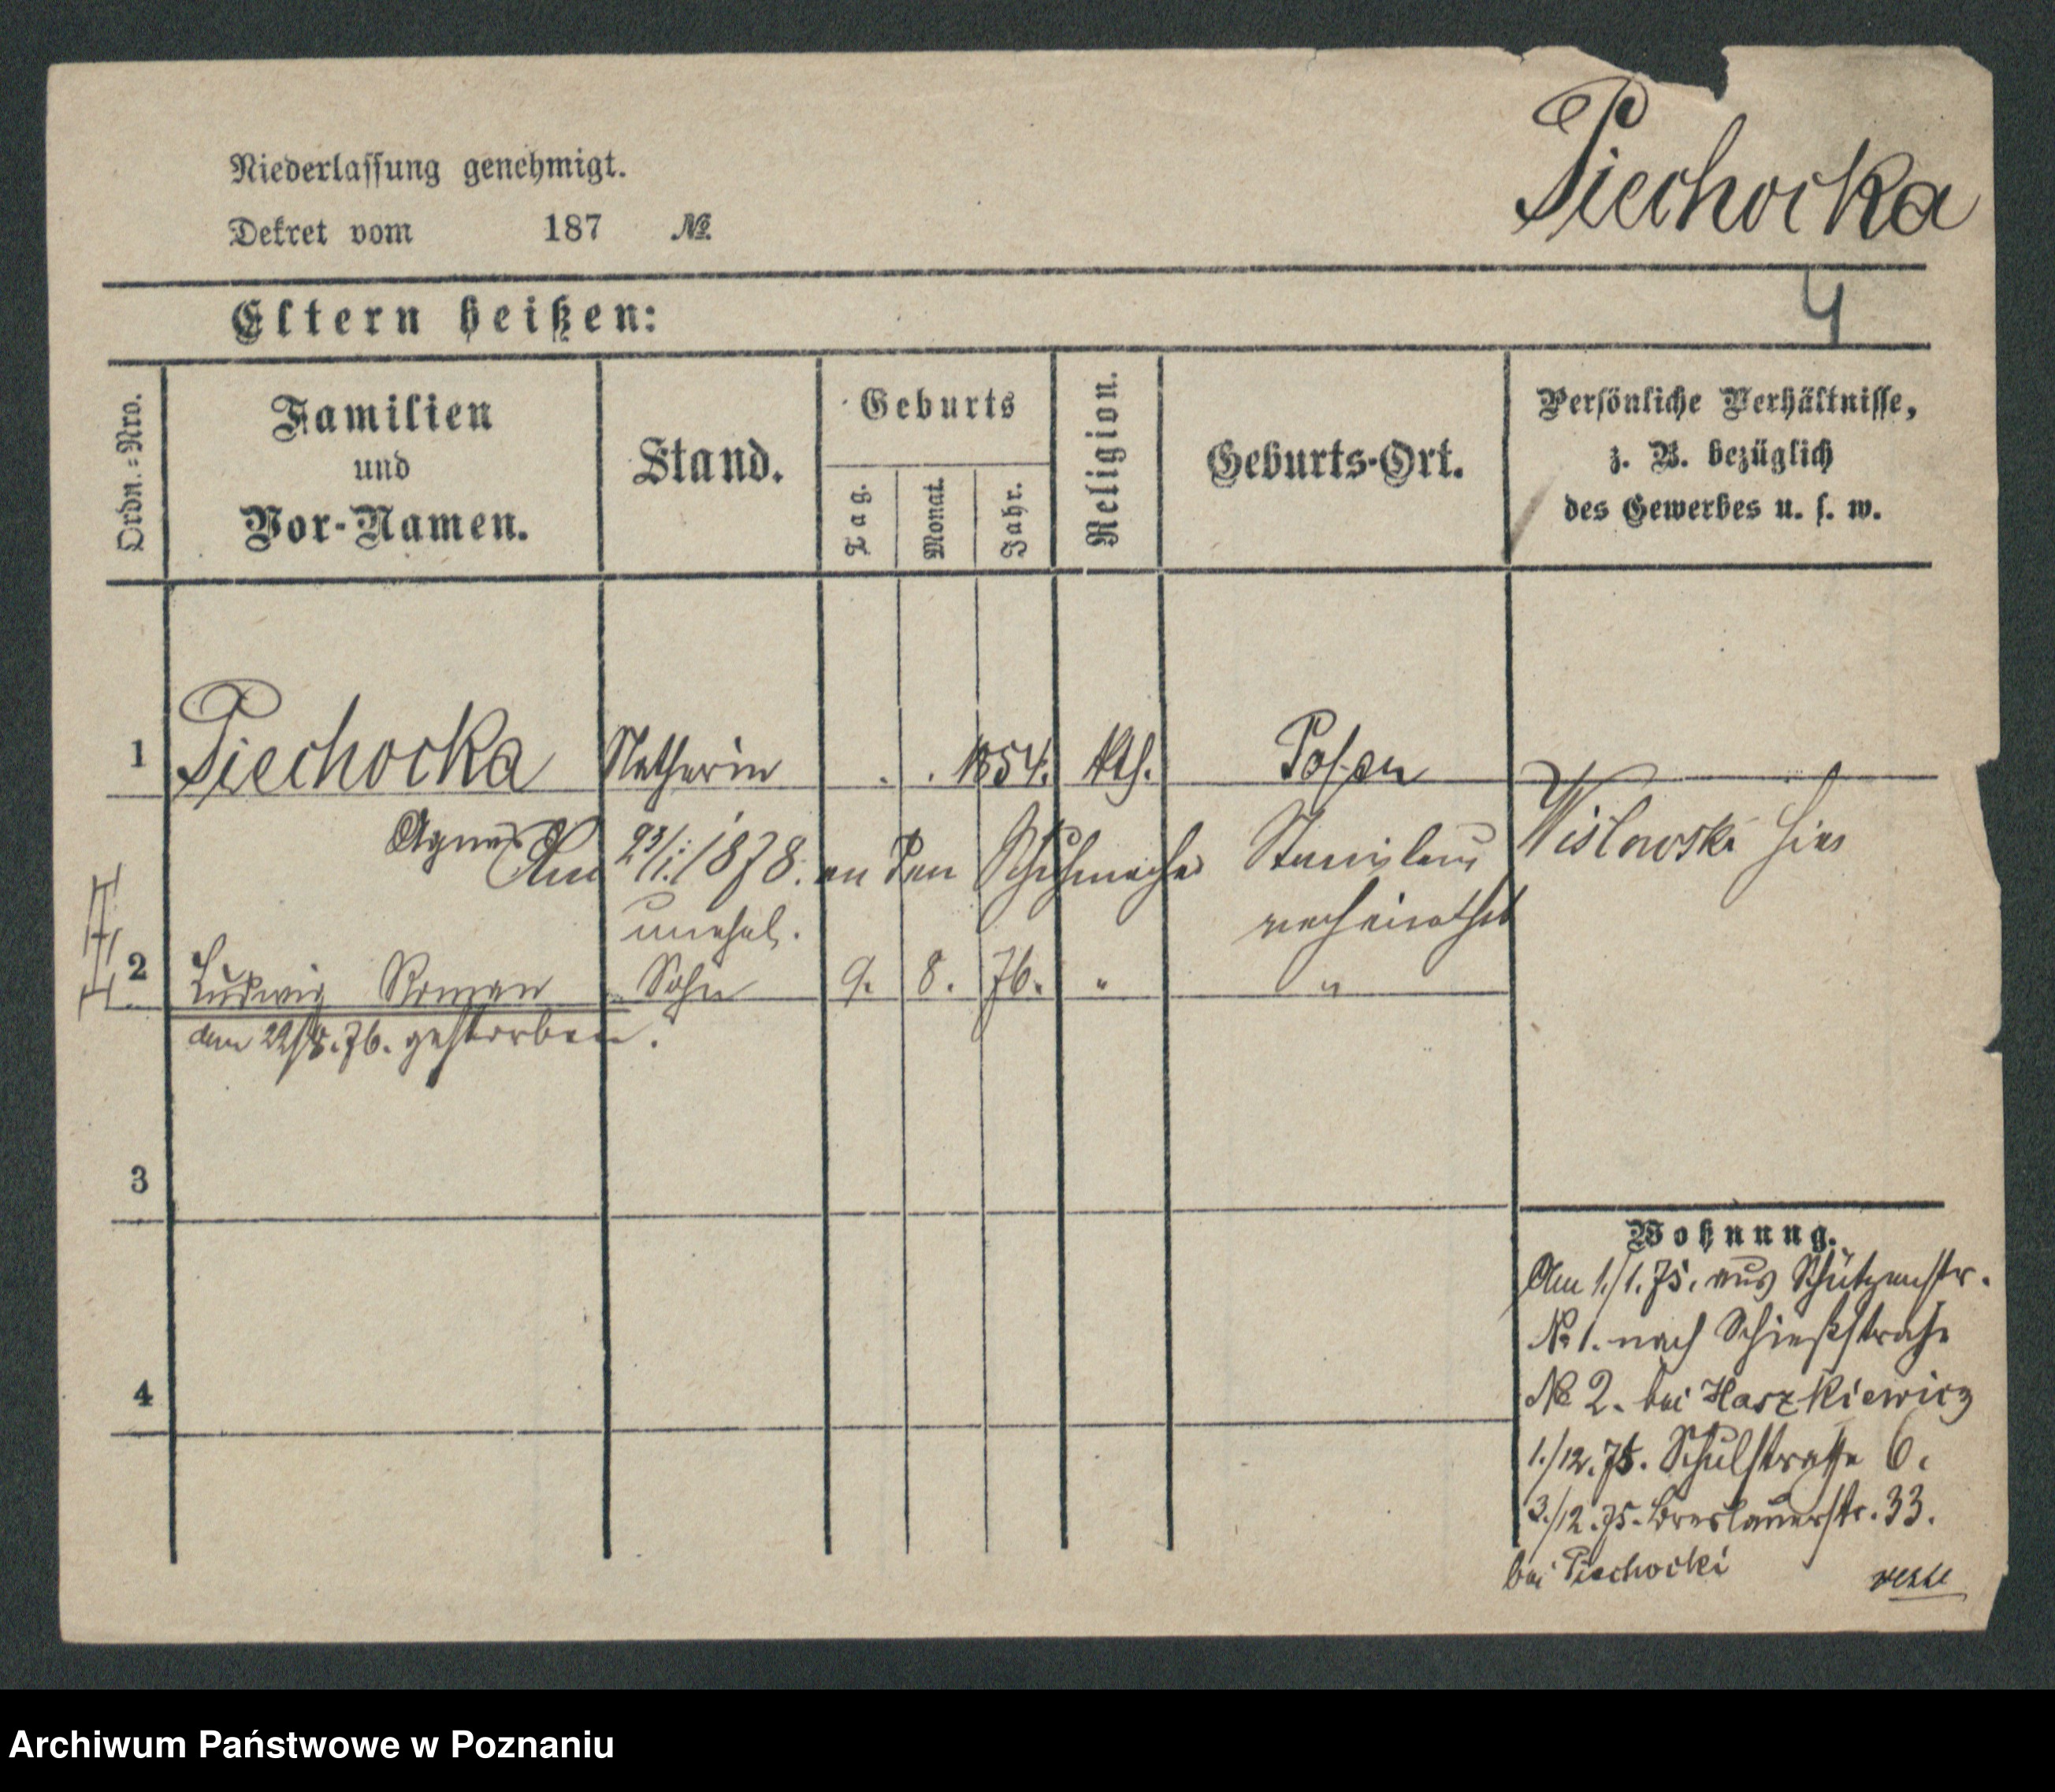 Piechocka
Niederlassung genehmigt.
Dekret vom 187 №
4
Eltern heißen:
Ordn.=Nro.
Familien
und
Vor-Namen.
Stand.
Geburts
Tag.
Monat.
Jahr.
Religion.
Geburts-Ort.
Persönliche Verhältnisse,
z. B. bezüglich
des Gewerbes u. s. w.
1 Piechocka Natherin . . 1854. kth. Posen
Agnes
Am 23/1. 1878. an den Schuhmacher Stanislaus Wislowski hier
verheirathet
unehel.
2 Ludwig Roman Sohn 9. 8. 76. " "
den 22/8. 76. gestorben.
3
4
Wohnung.
Am 1./1. 75. aus Schützenstr.
№ 1. nach Schießstraße
№ 2. bei Haszkiewicz
1./12. 75. Schulstraße 6.
3./12. 75. Breslauerstr. 33.
bei Piechocki
Archiwum Państwowe w Poznaniu